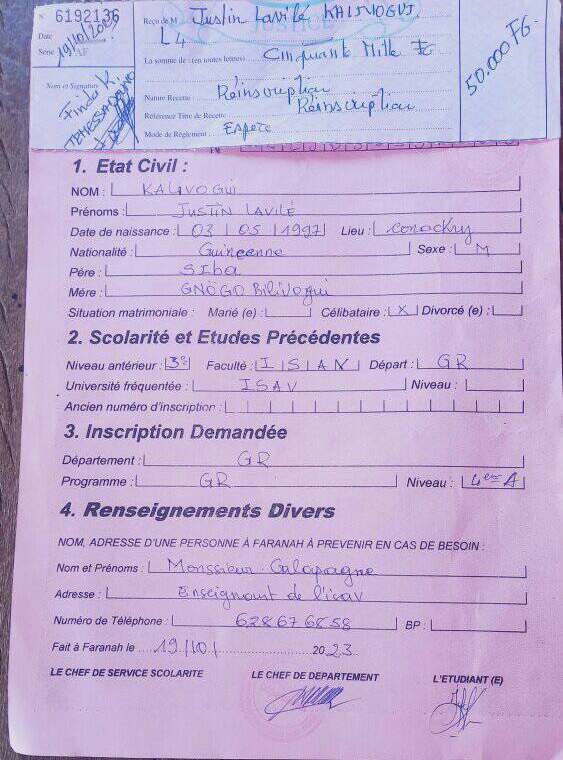 6192136
Date 19/10/2023
Série
Nom et Signature
Finda K
Reçu de M Justin Lavilé KALIVOGUI
L4
La somme de : (en toutes lettres) Cinquante Mille FG
50.000 FG
Nature Recette : Réinscription
Référence Titre de Recette Réinscription
Mode de Règlement : Espece
1. Etat Civil :
NOM : KALIVOGUI
Prénoms : JUSTIN LAVILÉ
Date de naissance : 03 / 05 / 1997 Lieu : Conackry
Nationalité : Guinéenne Sexe : M
Père : SIba
Mère : GNOGO Bilivogui
Situation matrimoniale : Marié (e) : Célibataire : X Divorcé (e) :
2. Scolarité et Etudes Précédentes
Niveau antérieur : 3e Faculté : ISAN Départ : GR
Université fréquentée : ISAV Niveau :
Ancien numéro d'inscription :
3. Inscription Demandée
Département : GR
Programme : GR Niveau : 4em A
4. Renseignements Divers
NOM, ADRESSE D'UNE PERSONNE À FARANAH À PREVENIR EN CAS DE BESOIN :
Nom et Prénoms : Monssieur Galapagne
Adresse : Enseignant de l'isav
Numéro de Téléphone : 628676858 BP :
Fait à Faranah le 19/10/ 2023
LE CHEF DE SERVICE SCOLARITE LE CHEF DE DÉPARTEMENT L'ETUDIANT (E)